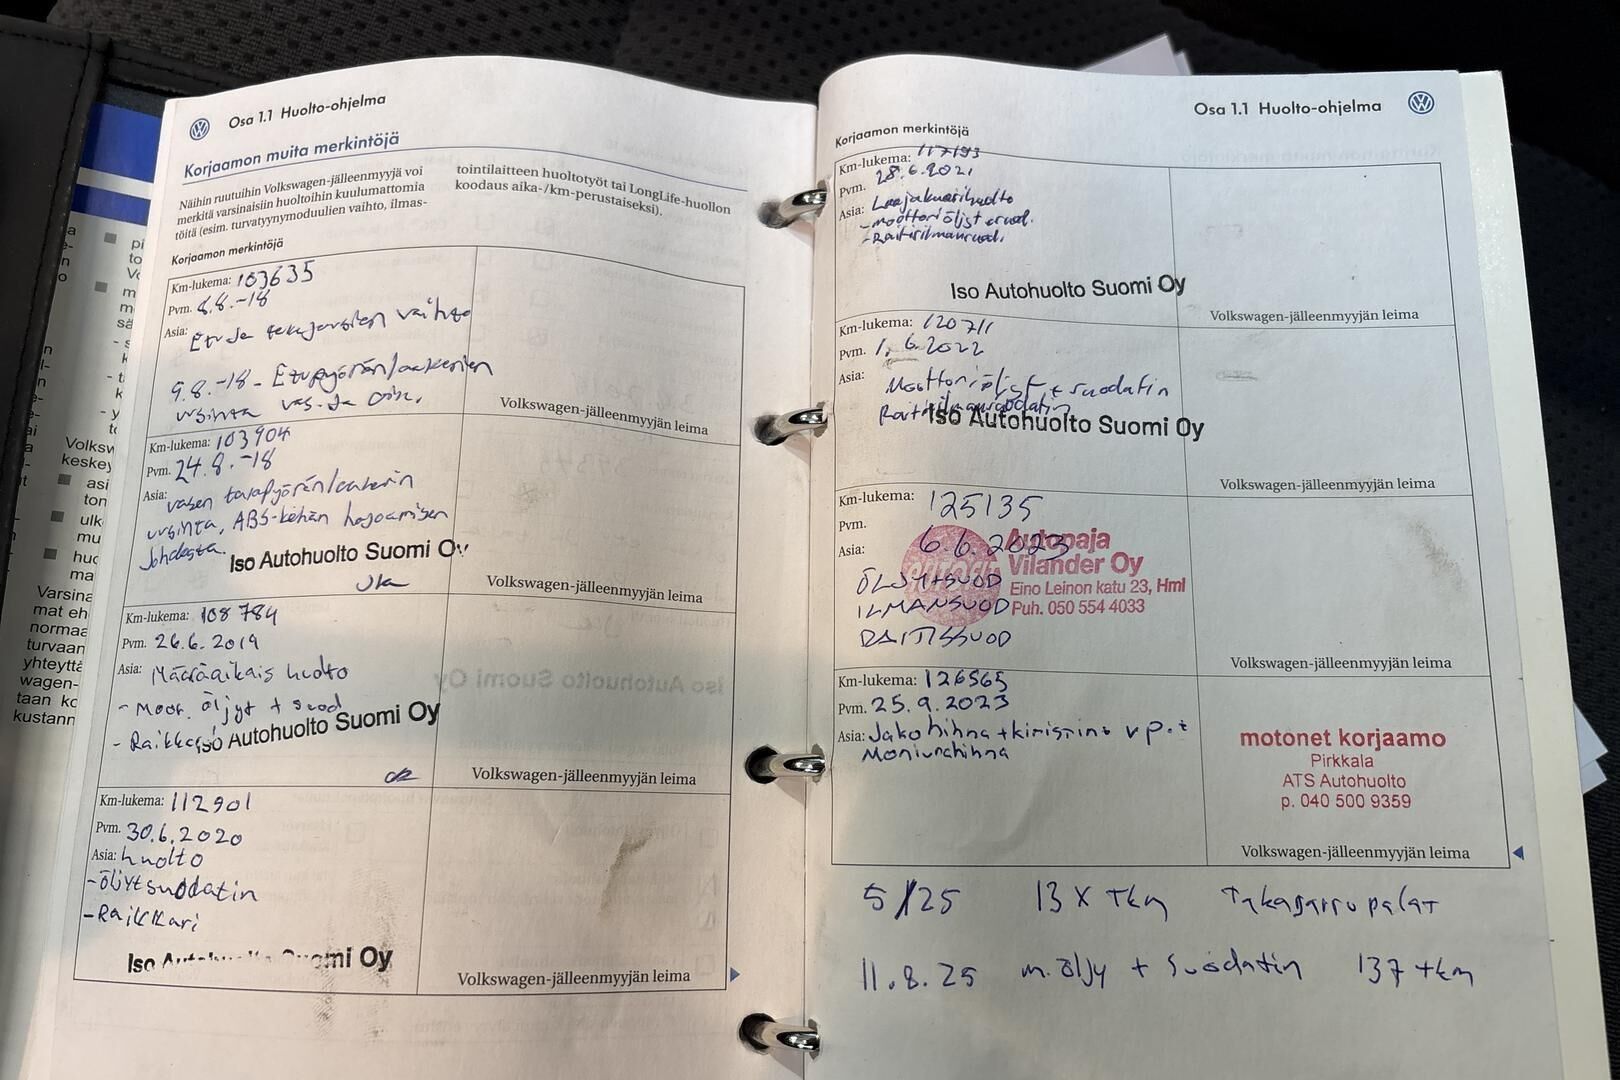 Osa 1.1 Huolto-ohjelma
Korjaamon muita merkintöjä
Näihin ruutuihin Volkswagen-jälleenmyyjä voi
merkitä varsinaisiin huoltoihin kuulumattomia
töitä (esim. turvatyynymoduulien vaihto, ilmas-
tointilaitteen huoltotyöt tai LongLife-huollon
koodaus aika-/km-perustaiseksi).
Korjaamon merkintöjä
Km-lukema: 103635
Pvm. 8.8.-18
Asia: Etu ja takajousien vaihto
9.8.-18 - Etupyöränlaakerien
uusinta vas. ja oik.
Volkswagen-jälleenmyyjän leima
Km-lukema: 103904
Pvm. 24.8.-18
Asia: vasen takapyöränlaakerin
uusinta, ABS-kehän hajoamisen
johdosta.
Iso Autohuolto Suomi Oy
Volkswagen-jälleenmyyjän leima
Km-lukema: 108784
Pvm. 26.6.2019
Asia: Määräaikais huolto
- Moor. öljyt + suod
- Raikkari
Iso Autohuolto Suomi Oy
Volkswagen-jälleenmyyjän leima
Km-lukema: 112901
Pvm. 30.6.2020
Asia: huolto
-öljytsuodatin
-Raikkari
Iso Autohuolto Suomi Oy
Volkswagen-jälleenmyyjän leima
Osa 1.1 Huolto-ohjelma
Korjaamon merkintöjä
Km-lukema: 117193
Pvm. 28.6.2021
Asia:
-moottoriöljyt
Iso Autohuolto Suomi Oy
Volkswagen-jälleenmyyjän leima
Km-lukema: 120711
Pvm. 1.6.2022
Asia: Moottoriöljyt + suodatin
Raitisilmansuodatin
Iso Autohuolto Suomi Oy
Volkswagen-jälleenmyyjän leima
Km-lukema: 125135
Pvm. 6.6.2023
Asia:
ÖLJYT+SUOD
ILMANSUOD
RAITISSUOD
Autopaja
Vilander Oy
Eino Leinon katu 23, Hml
Puh. 050 554 4033
Volkswagen-jälleenmyyjän leima
Km-lukema: 126565
Pvm. 25.9.2023
Asia: Jakohihna + kiristin + v.p. +
Moniurahihna
motonet korjaamo
Pirkkala
ATS Autohuolto
p. 040 500 9359
Volkswagen-jälleenmyyjän leima
5/25 13X Tkm Takajarrupalat
11.8.25 m.öljy + suodatin 137 tkm